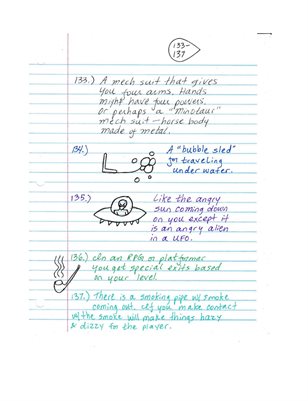 133-
137
133.) A mech suit that gives
you four arms. Hands
might have four powers.
Or perhaps a "Minotaur"
mech suit - horse body
made of metal.
134.) A "bubble sled"
for traveling
under water.
135.) Like the angry
sun coming down
on you except it
is an angry alien
in a UFO.
136.) In an RPG or platformer
you get special exits based
on your level.
137.) There is a smoking pipe w/ smoke
coming out. If you make contact
w/ the smoke will make things hazy
& dizzy for the player.